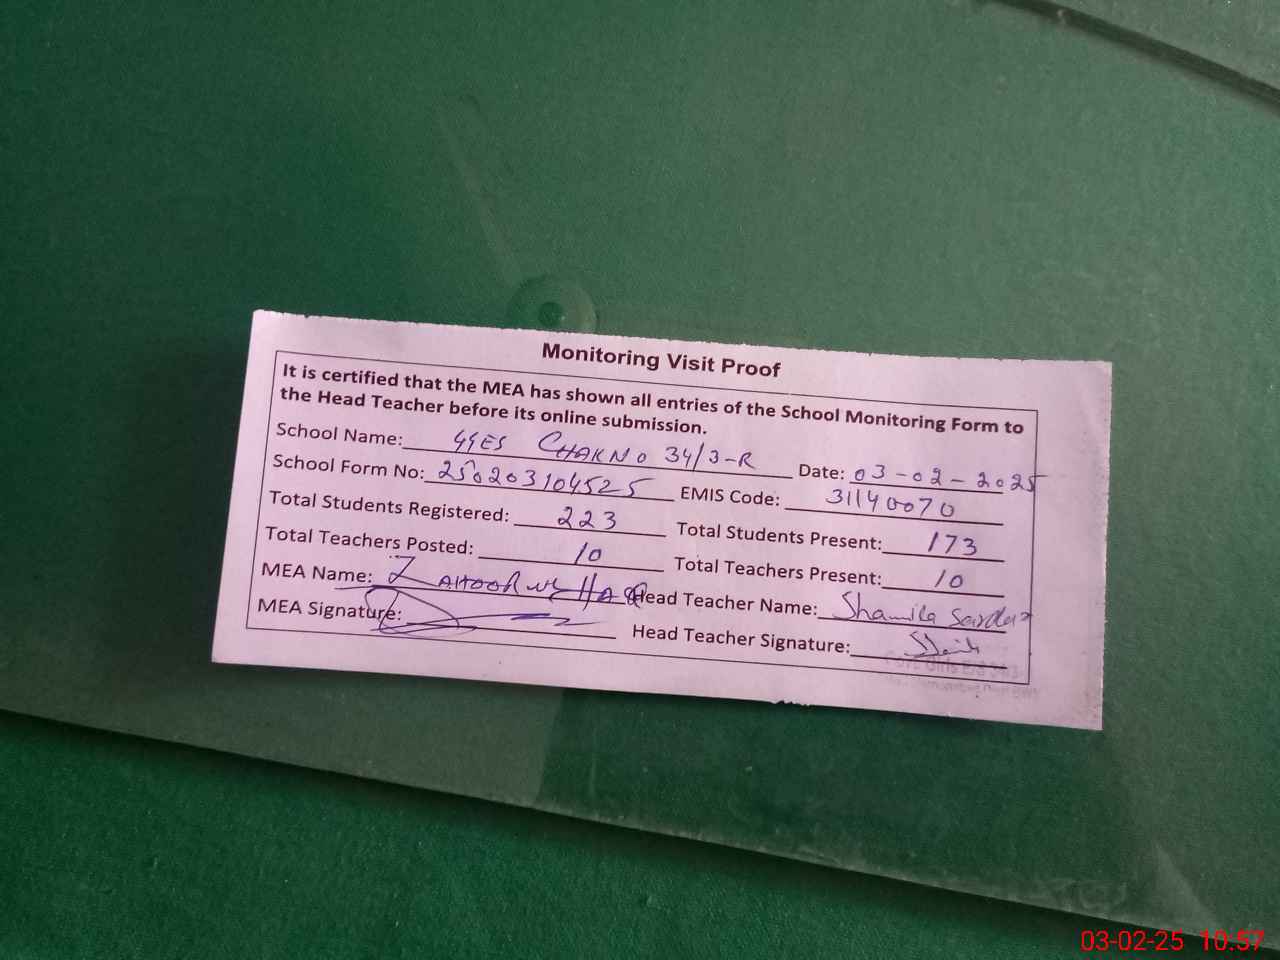 Monitoring Visit Proof
It is certified that the MEA has shown all entries of the School Monitoring Form to
the Head Teacher before its online submission.
School Name: GGES CHAK NO 34/3-R Date: 03-02-2025
School Form No: 250203104525 EMIS Code: 31140070
Total Students Registered: 223 Total Students Present: 173
Total Teachers Posted: 10 Total Teachers Present: 10
MEA Name: ZAHOOR UL HAQ Head Teacher Name: Shamila Sardar
MEA Signature: Head Teacher Signature:
03-02-25 10:57